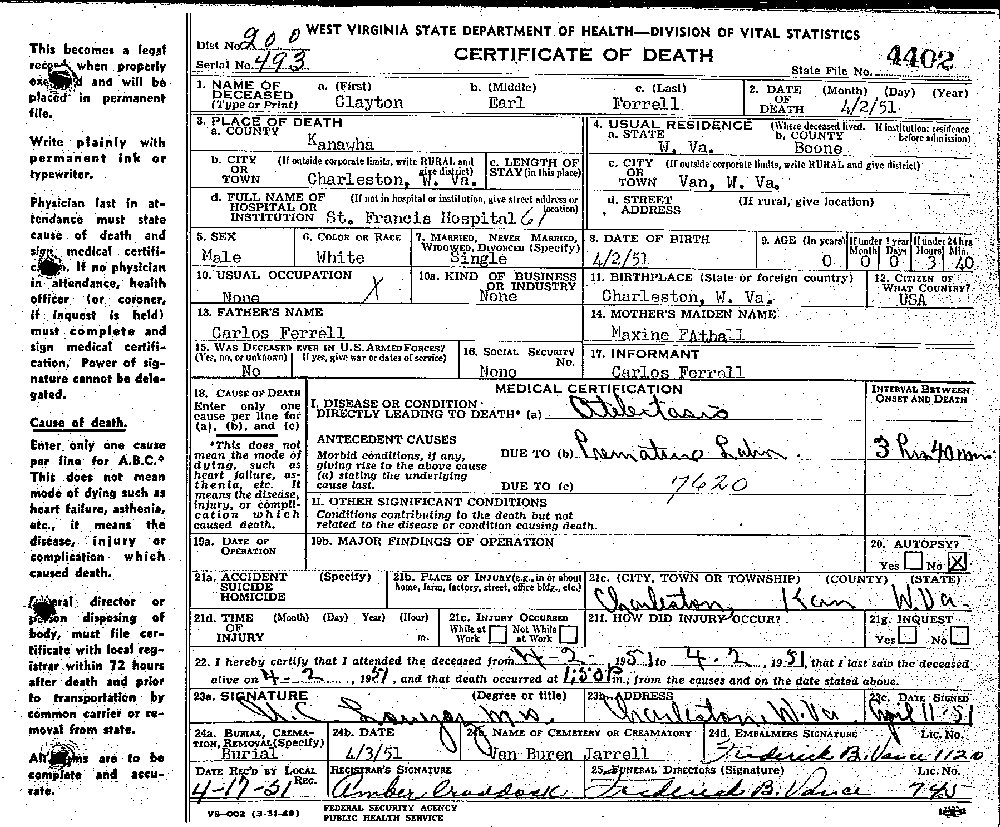 WEST VIRGINIA STATE DEPARTMENT OF HEALTH—DIVISION OF VITAL STATISTICS
Dist No. 900
Serial No. 493
CERTIFICATE OF DEATH
State File No. 4402
This becomes a legal
record when properly
and will be
placed in permanent
file.
Write plainly with
permanent ink or
typewriter.
Physician last in at-
tendance must state
cause of death and
sign medical certifi-
If no physician
in attendance, health
officer (or coroner,
if inquest is held)
must complete and
sign medical certifi-
cation. Power of sig-
nature cannot be dele-
gated.
Cause of death.
Enter only one cause
per line for A.B.C.*
This does not mean
mode of dying such as
heart failure, asthenia,
etc., it means the
disease, injury or
complication which
caused death.
Funeral director or
person disposing of
body, must file cer-
tificate with local reg-
istrar within 72 hours
after death and prior
to transportation by
common carrier or re-
moval from state.
are to be
complete and accu-
rate.
1. NAME OF DECEASED (Type or Print) a. (First) Clayton b. (Middle) Earl c. (Last) Ferrell
2. DATE OF DEATH (Month) (Day) (Year) 4/2/51
3. PLACE OF DEATH
a. COUNTY Kanawha
b. CITY OR TOWN (If outside corporate limits, write RURAL and give district) Charleston, W. Va.
c. LENGTH OF STAY (in this place)
d. FULL NAME OF HOSPITAL OR INSTITUTION (If not in hospital or institution, give street address or location) St. Francis Hospital 61
4. USUAL RESIDENCE (Where deceased lived. If institution: residence before admission)
a. STATE W. Va. b. COUNTY Boone
c. CITY OR TOWN (If outside corporate limits, write RURAL and give district) Van, W. Va.
d. STREET ADDRESS (If rural, give location)
5. SEX Male
6. COLOR OR RACE White
7. MARRIED, NEVER MARRIED, WIDOWED, DIVORCED (Specify) Single
8. DATE OF BIRTH 4/2/51
9. AGE (In years) 0 If under 1 year Month 0 Days 0 If under 24 hrs Hours 3 Min. 40
10. USUAL OCCUPATION None X
10a. KIND OF BUSINESS OR INDUSTRY None
11. BIRTHPLACE (State or foreign country) Charleston, W. Va.
12. CITIZEN OF WHAT COUNTRY? USA
13. FATHER'S NAME Carlos Ferrell
14. MOTHER'S MAIDEN NAME Maxine
15. WAS DECEASED EVER IN U.S. ARMED FORCES? (Yes, no, or unknown) (If yes, give war or dates of service) No
16. SOCIAL SECURITY No. None
17. INFORMANT Carlos Ferrell
MEDICAL CERTIFICATION
INTERVAL BETWEEN ONSET AND DEATH
18. CAUSE OF DEATH
Enter only one cause per line for (a), (b), and (c)
*This does not mean the mode of dying, such as heart failure, asthenia, etc. It means the disease, injury, or complication which caused death.
I. DISEASE OR CONDITION DIRECTLY LEADING TO DEATH* (a) Atelectasis
ANTECEDENT CAUSES
Morbid conditions, if any, giving rise to the above cause (a) stating the underlying cause last.
DUE TO (b) Premature Labor. 3 hrs 40 min
DUE TO (c) 7620
II. OTHER SIGNIFICANT CONDITIONS
Conditions contributing to the death but not related to the disease or condition causing death.
19a. DATE OF OPERATION
19b. MAJOR FINDINGS OF OPERATION
20. AUTOPSY? Yes No X
21a. ACCIDENT SUICIDE HOMICIDE (Specify)
21b. PLACE OF INJURY (e.g., in or about home, farm, factory, street, office bldg., etc.)
21c. (CITY, TOWN OR TOWNSHIP) (COUNTY) (STATE) Charleston, Kan W. Va.
21d. TIME OF INJURY (Month) (Day) (Year) (Hour) m.
21e. INJURY OCCURRED While at Work Not While at Work
21f. HOW DID INJURY OCCUR?
21g. INQUEST Yes No
22. I hereby certify that I attended the deceased from 4-2-, 1951 to 4-2, 1951, that I last saw the deceased
alive on 4-2, 1951, and that death occurred at m., from the causes and on the date stated above.
23a. SIGNATURE (Degree or title) M.D.
23b. ADDRESS Charleston, W. Va.
23c. DATE SIGNED April 11-51
24a. BURIAL, CREMATION, REMOVAL (Specify) Burial
24b. DATE 4/3/51
24c. NAME OF CEMETERY OR CREMATORY Van Buren Jarrell
24d. EMBALMERS SIGNATURE LIC. NO. Frederick B. Vance 1120
DATE REC'D BY LOCAL REG. 4-17-51
REGISTRAR'S SIGNATURE Amber Craddock
25. FUNERAL DIRECTORS (Signature) LIC. NO. Frederick B. Vance 745
VS-002 (3-31-49)
FEDERAL SECURITY AGENCY
PUBLIC HEALTH SERVICE